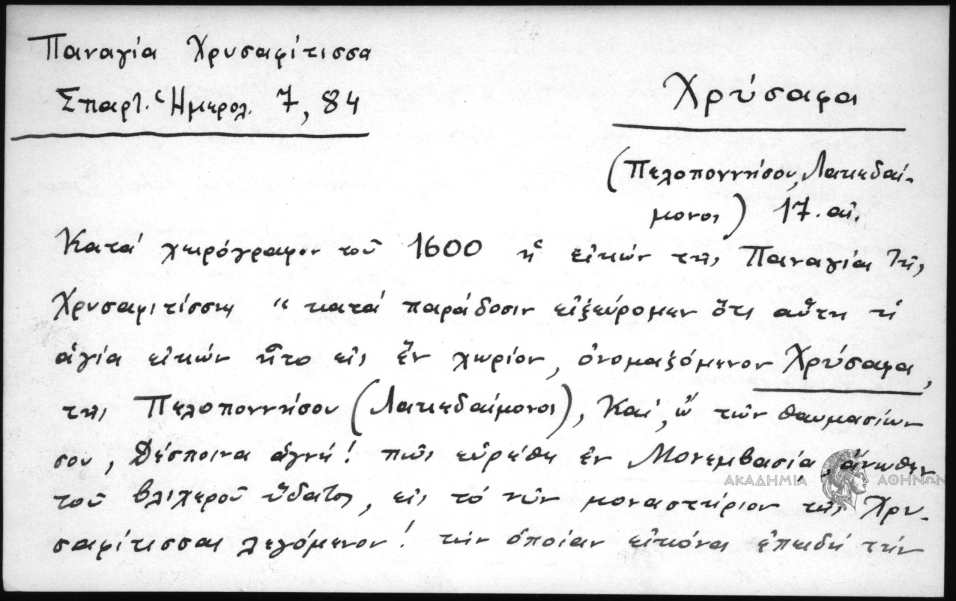 Παναγία Χρυσαφίτισσα
Σπαρτ. Ἡμερολ. 7, 84
Χρύσαφα
(Πελοποννήσου, Λακεδαί-
μονος) 17. αἰ.
Κατά χειρόγραφον τοῦ 1600 ἡ εἰκών τῆς Παναγίας τῆς
Χρυσαφιτίσσης "κατά παράδοσιν εἰξεύρομεν ὅτι αὕτη ἡ
ἁγία εἰκών ἦτο εἰς ἕν χωρίον, ὀνομαζόμενον Χρύσαφα,
τῆς Πελοποννήσου (Λακεδαίμονος), Καί, ὤ τῶν θαυμασίων
σου, Δέσποινα ἁγνή! πῶς εὑρέθη ἐν Μονεμβασίᾳ, ἄνωθεν
τοῦ ὕδατος, εἰς τό νῦν μοναστήριον τῆς Χρυ-
σαφίτισσας λεγόμενον! τήν ὁποίαν εἰκόνα ἐπειδή τήν
ΑΚΑΔΗΜΙΑ ΑΘΗΝΩΝ